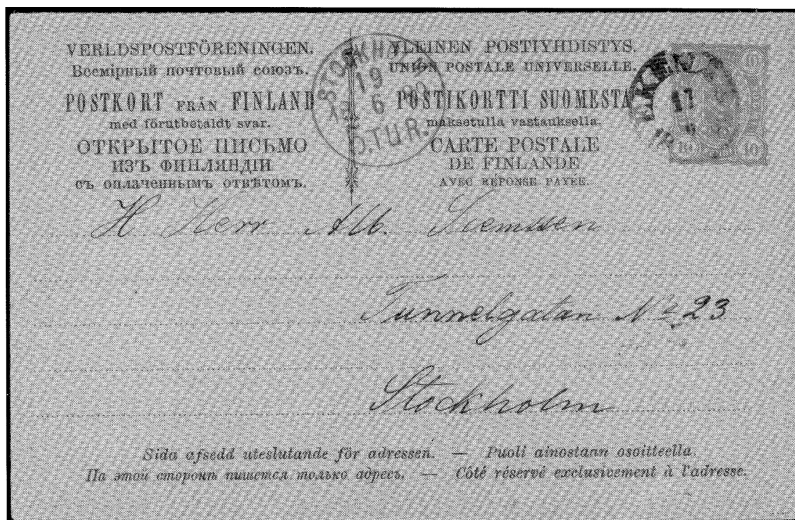 VERLDSPOSTFÖRENINGEN.
Всемірный почтовый союзъ.
POSTKORT FRÅN FINLAND
med förutbetaldt svar.
ОТКРЫТОЕ ПИСЬМО
ИЗЪ ФИНЛЯНДІИ
съ оплаченнымъ отвѣтомъ.
YLEINEN POSTIYHDISTYS.
UNION POSTALE UNIVERSELLE.
POSTIKORTTI SUOMESTA
maksetulla vastauksella.
CARTE POSTALE
DE FINLANDE
AVEC RÉPONSE PAYÉE.
STOCKHOLM
19
6
TUR.
17
10
10
10
H Herr Alb. Siemssen
Tunnelgatan No 23
Stockholm
Sida afsedd uteslutande för adressen. — Puoli ainostaan osoitteella.
На этой сторонѣ пишется только адресъ. — Côté réservé exclusivement à l'adresse.